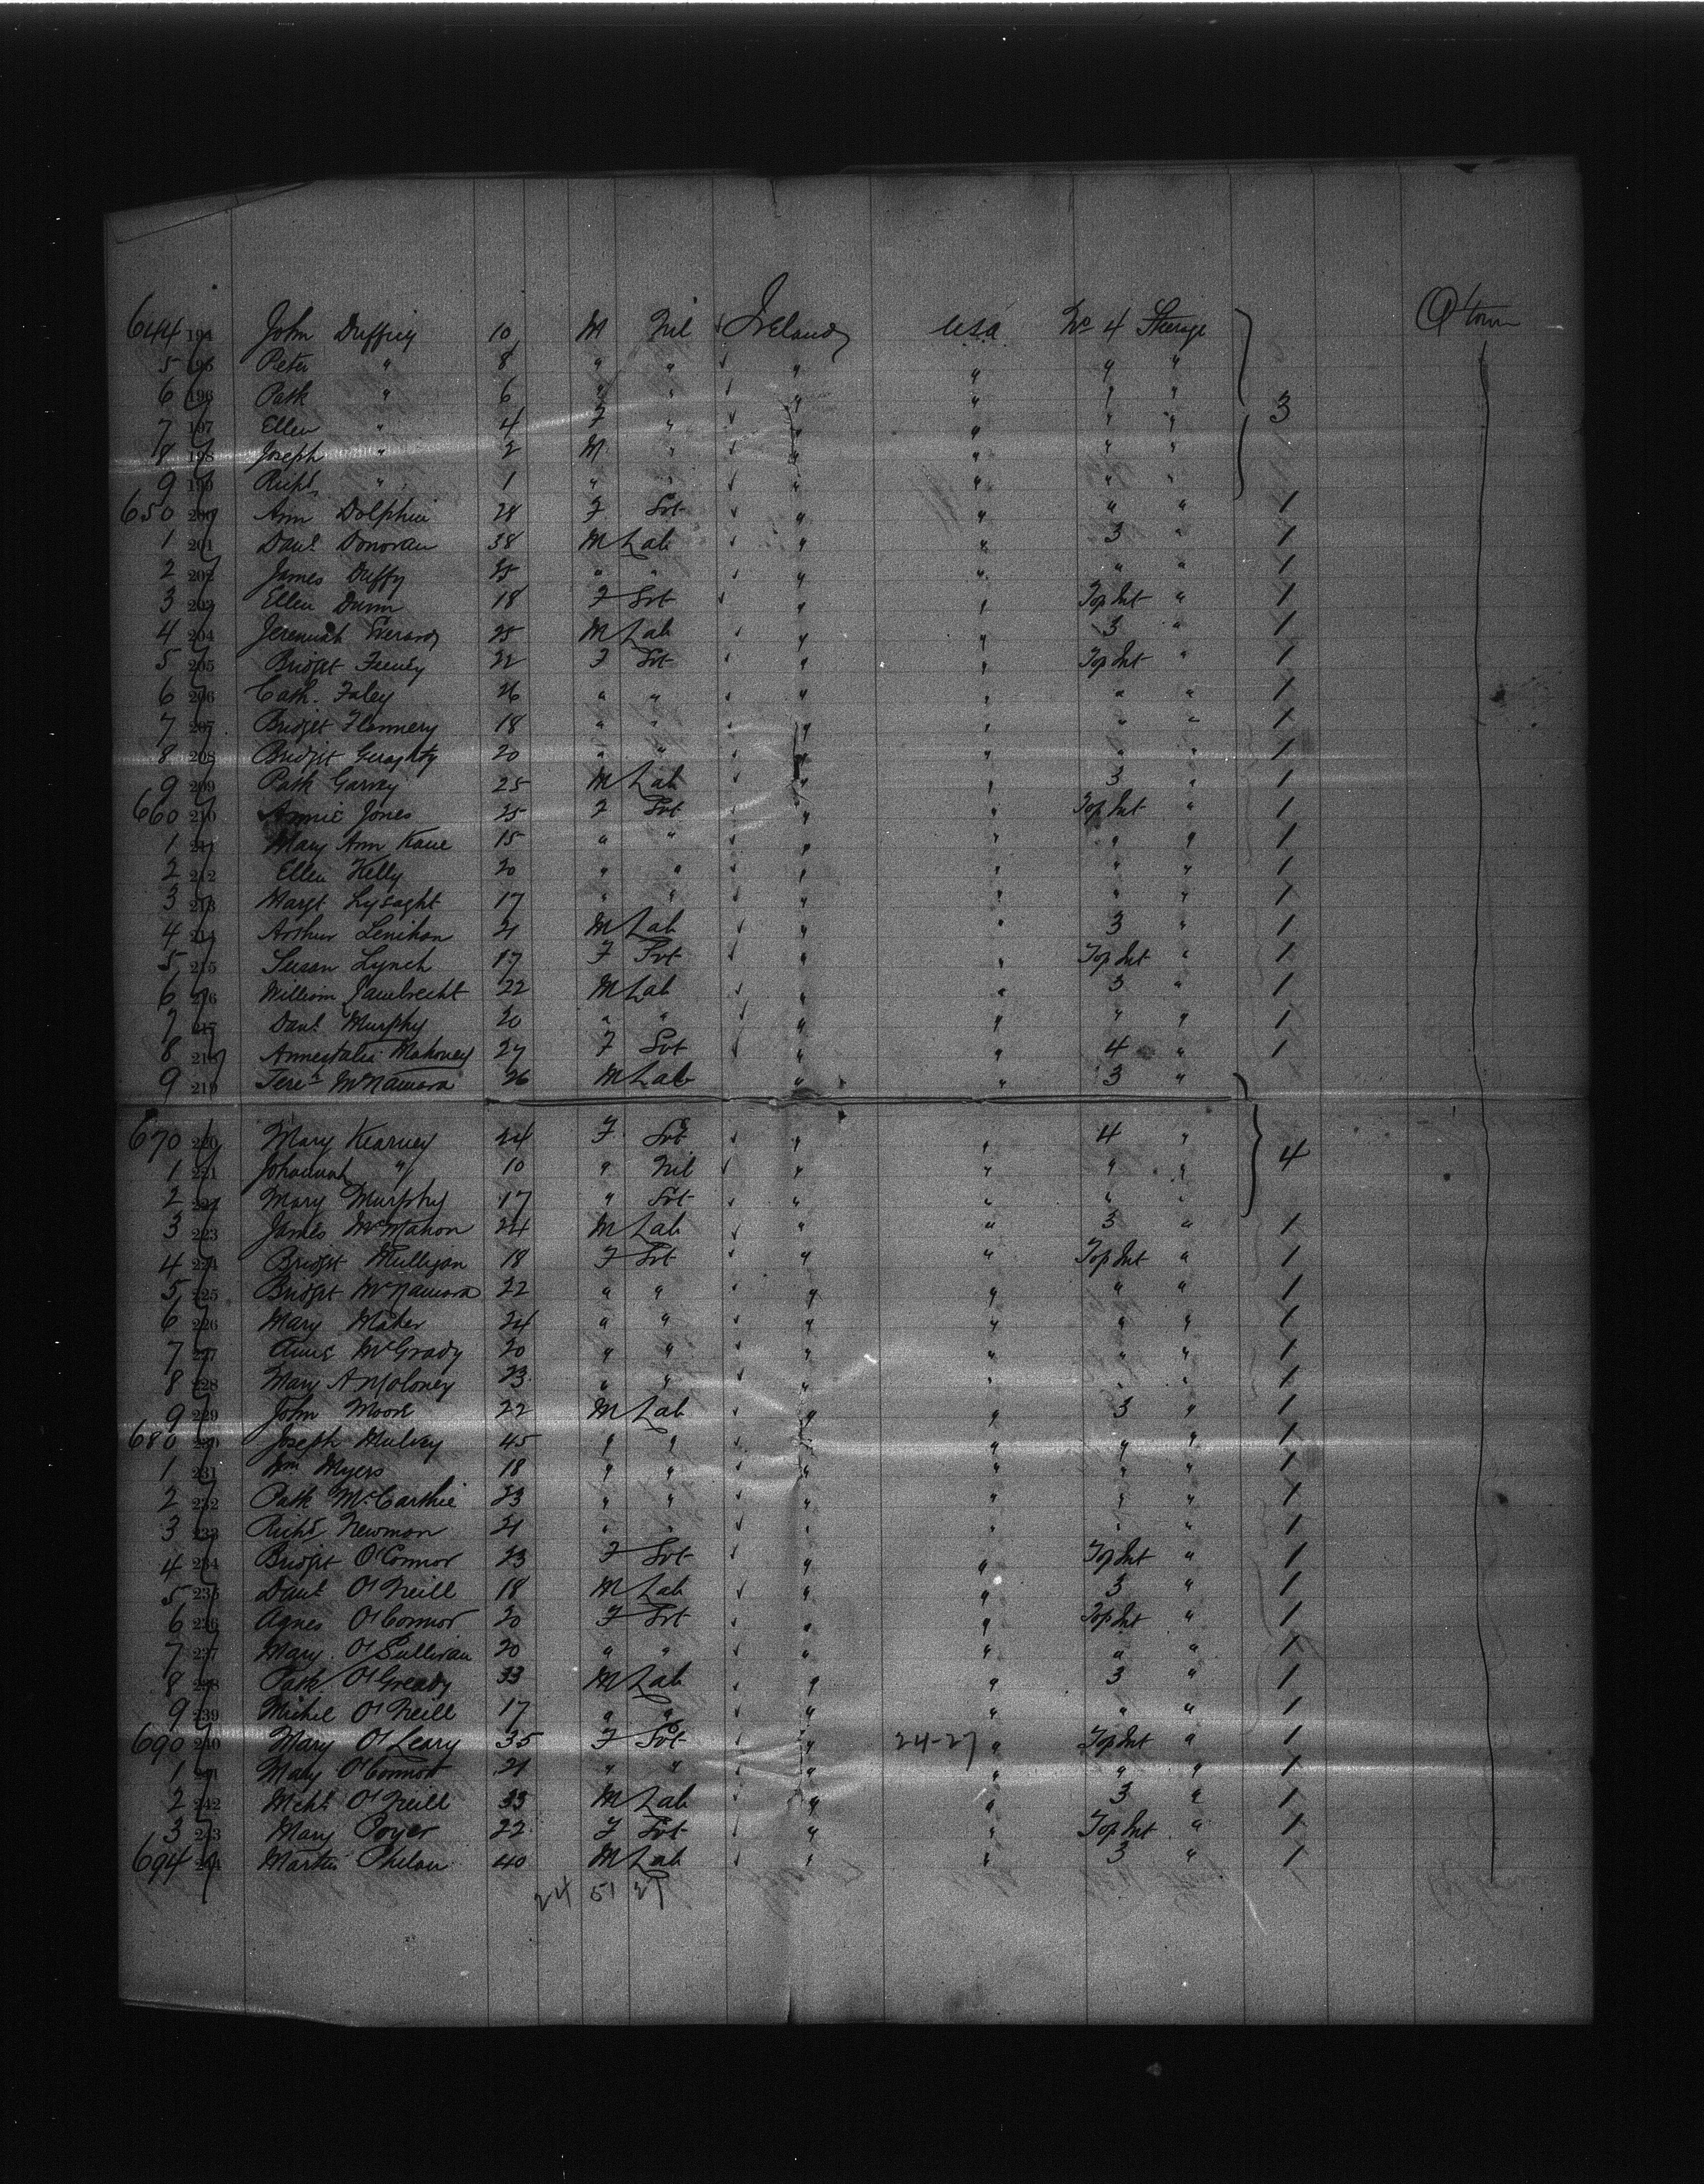 644 194 John Duffrey 10 M Nil Ireland USA No 4 Steerage Q'town
5 195 Peter " 8 " " " " " "
6 196 Patk " 6 " " " " " " 3
7 197 Ellen " 4 F " " " " "
8 198 Joseph " 2 M " " " " "
9 199 Richd " 1 " " " " " "
650 200 Ann Dolphin 28 F Svt " " " " 1
1 201 Danl Donovan 38 M Lab " " 3 " 1
2 202 James Duffy 25 " " " " " " 1
3 203 Ellen Dunn 18 F Svt " " Top Int " 1
4 204 Jeremiah Everard 25 M Lab " " 3 " 1
5 205 Bridget Feeney 22 F Svt " " Top Int " 1
6 206 Cath. Faley 26 " " " " " " 1
7 207 Bridget Flannery 18 " " " " " " 1
8 208 Bridgit Geraghty 20 " " " " " " 1
9 209 Patk Garvey 25 M Lab " " 3 " 1
660 210 Annie Jones 25 F Svt " " Top Int " 1
1 211 Mary Ann Kane 15 " " " " " " 1
2 212 Ellen Kelly 20 " " " " " " 1
3 213 Margt Lysaght 17 " " " " " " 1
4 214 Arthur Lenihan 21 M Lab " " 3 " 1
5 215 Susan Lynch 17 F Svt " " Top Int " 1
6 216 William Lambrecht 22 M Lab " " 3 " 1
7 217 Danl Murphy 20 " " " " " " 1
8 218 Mahoney 27 F Svt " " 4 " 1
9 219 Jereh McNamara 26 M Lab " " 3 "
670 220 Mary Kearney 24 F Svt " " 4 "
1 221 Johannah " 10 " Nil " " " " 4
2 222 Mary Murphy 17 " Svt " " " "
3 223 James McMahon 24 M Lab " " 3 " 1
4 224 Bridgt Mulligan 18 F Svt " " Top Int " 1
5 225 Bridget McNamara 22 " " " " " " 1
6 226 Mary Maher 24 " " " " " " 1
7 227 Annie McGrady 20 " " " " " " 1
8 228 Mary A Moloney 23 " " " " " " 1
9 229 John Moore 22 M Lab " " 3 " 1
680 230 Joseph Mulvey 45 " " " " " " 1
1 231 Wm Myers 18 " " " " " " 1
2 232 Patk McCarthie 23 " " " " " " 1
3 233 Richd Newman 21 " " " " " " 1
4 234 Bridgit O'Connor 23 F Svt " " Top Int " 1
5 235 Danl O'Neill 18 M Lab " " 3 " 1
6 236 Agnes O'Connor 20 F Svt " " Top Int " 1
7 237 Mary O'Sullivan 20 " " " " " " 1
8 238 Patk O'Gready 33 M Lab " " 3 " 1
9 239 Michel O'Neill 17 " " " " " " 1
690 240 Mary O'Leary 35 F Svt " 24-27 " Top Int " 1
1 241 Mary O'Connor 21 " " " " " " 1
2 242 Mchl O'Neill 35 M Lab " " 3 " 1
3 243 Mary Poyer 22 F Svt " " Top Int " 1
694 244 Martin Phelan 40 M Lab " " 3 " 1
24 51 27